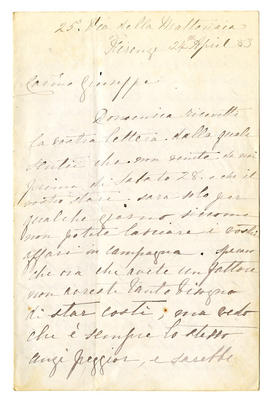 25. Via della Mattonaia
Firenze 24th April 83
Carino Giuseppe
Domenica ricevetti
la vostra lettera dalla quale
sentii che non venite da noi
prima di sabato 28. e che il
vostro stare sara solo per
qualche giorno siccome
non potete lasciare i vostri
affari in campagna. speravo
che ora che avete un fattore
non avreste tanto bisogno
di star costì, ma vedo
che è sempre lo stesso
anzi peggior, e sarebbe